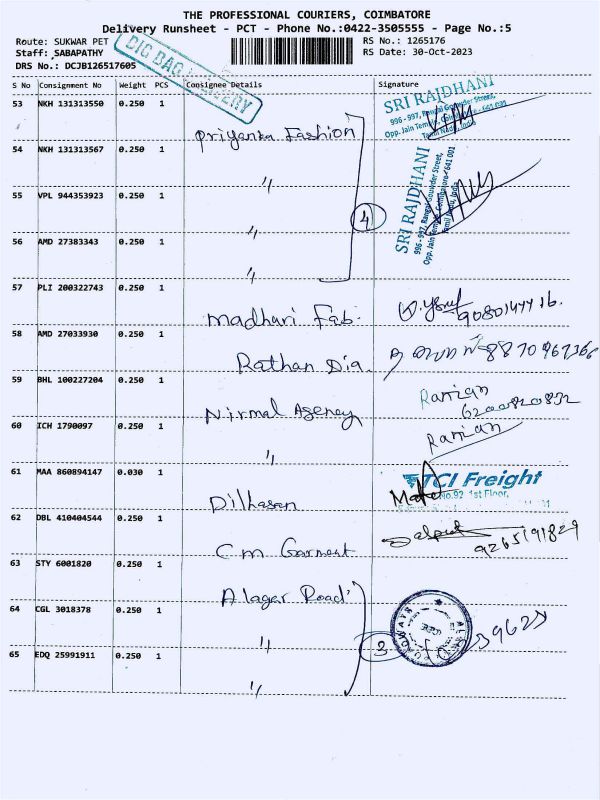 THE PROFESSIONAL COURIERS, COIMBATORE
Delivery Runsheet - PCT - Phone No.:0422-3505555 - Page No.:5
Route: SUKWAR PET
RS No.: 1265176
Staff: SABAPATHY
RS Date: 30-Oct-2023
DRS No.: DCJB126517605
S No Consignment No Weight PCS Consignee Details Signature
53 NKH 131313550 0.250 1 Priyanka Fashion
SRI RAJDHANI
54 NKH 131313567 0.250 1 "
SRI RAJDHANI
55 VPL 944353923 0.250 1 "
4
56 AMD 27383343 0.250 1 "
57 PLI 200322743 0.250 1 Madhari Fab.
58 AMD 27033930 0.250 1 Rathan Dia.
59 BHL 100227204 0.250 1 Nirmal Agency
Ranjan
6200820832
60 ICH 1790097 0.250 1 "
Ranjan
61 MAA 860894147 0.030 1 Dilhasan
TCI Freight
No.92 1st Floor,
62 DBL 410404544 0.250 1 Cm Garment
9265191829
63 STY 6001820 0.250 1 Alagar Road
64 CGL 3018378 0.250 1 "
3
65 EDQ 25991911 0.250 1 "